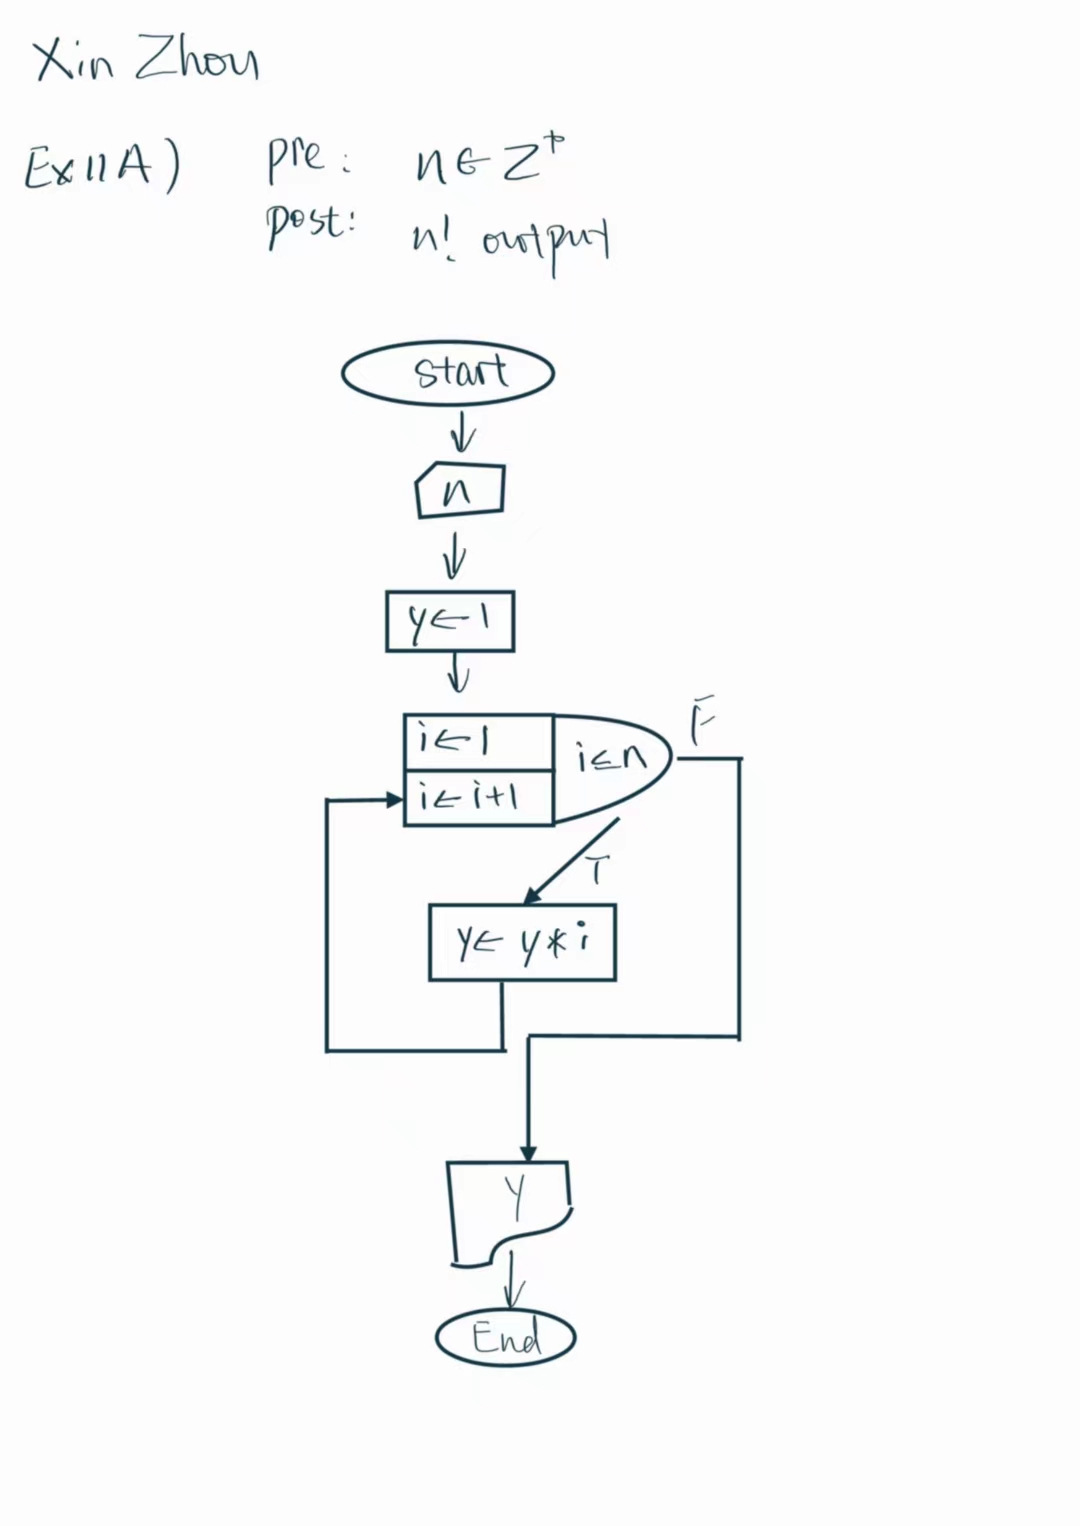 Xin Zhou
Ex11A) pre: n∈Z⁺
post: n! output
start
n
y←1
i←1
i≤n
F
i←i+1
T
y←y*i
y
End